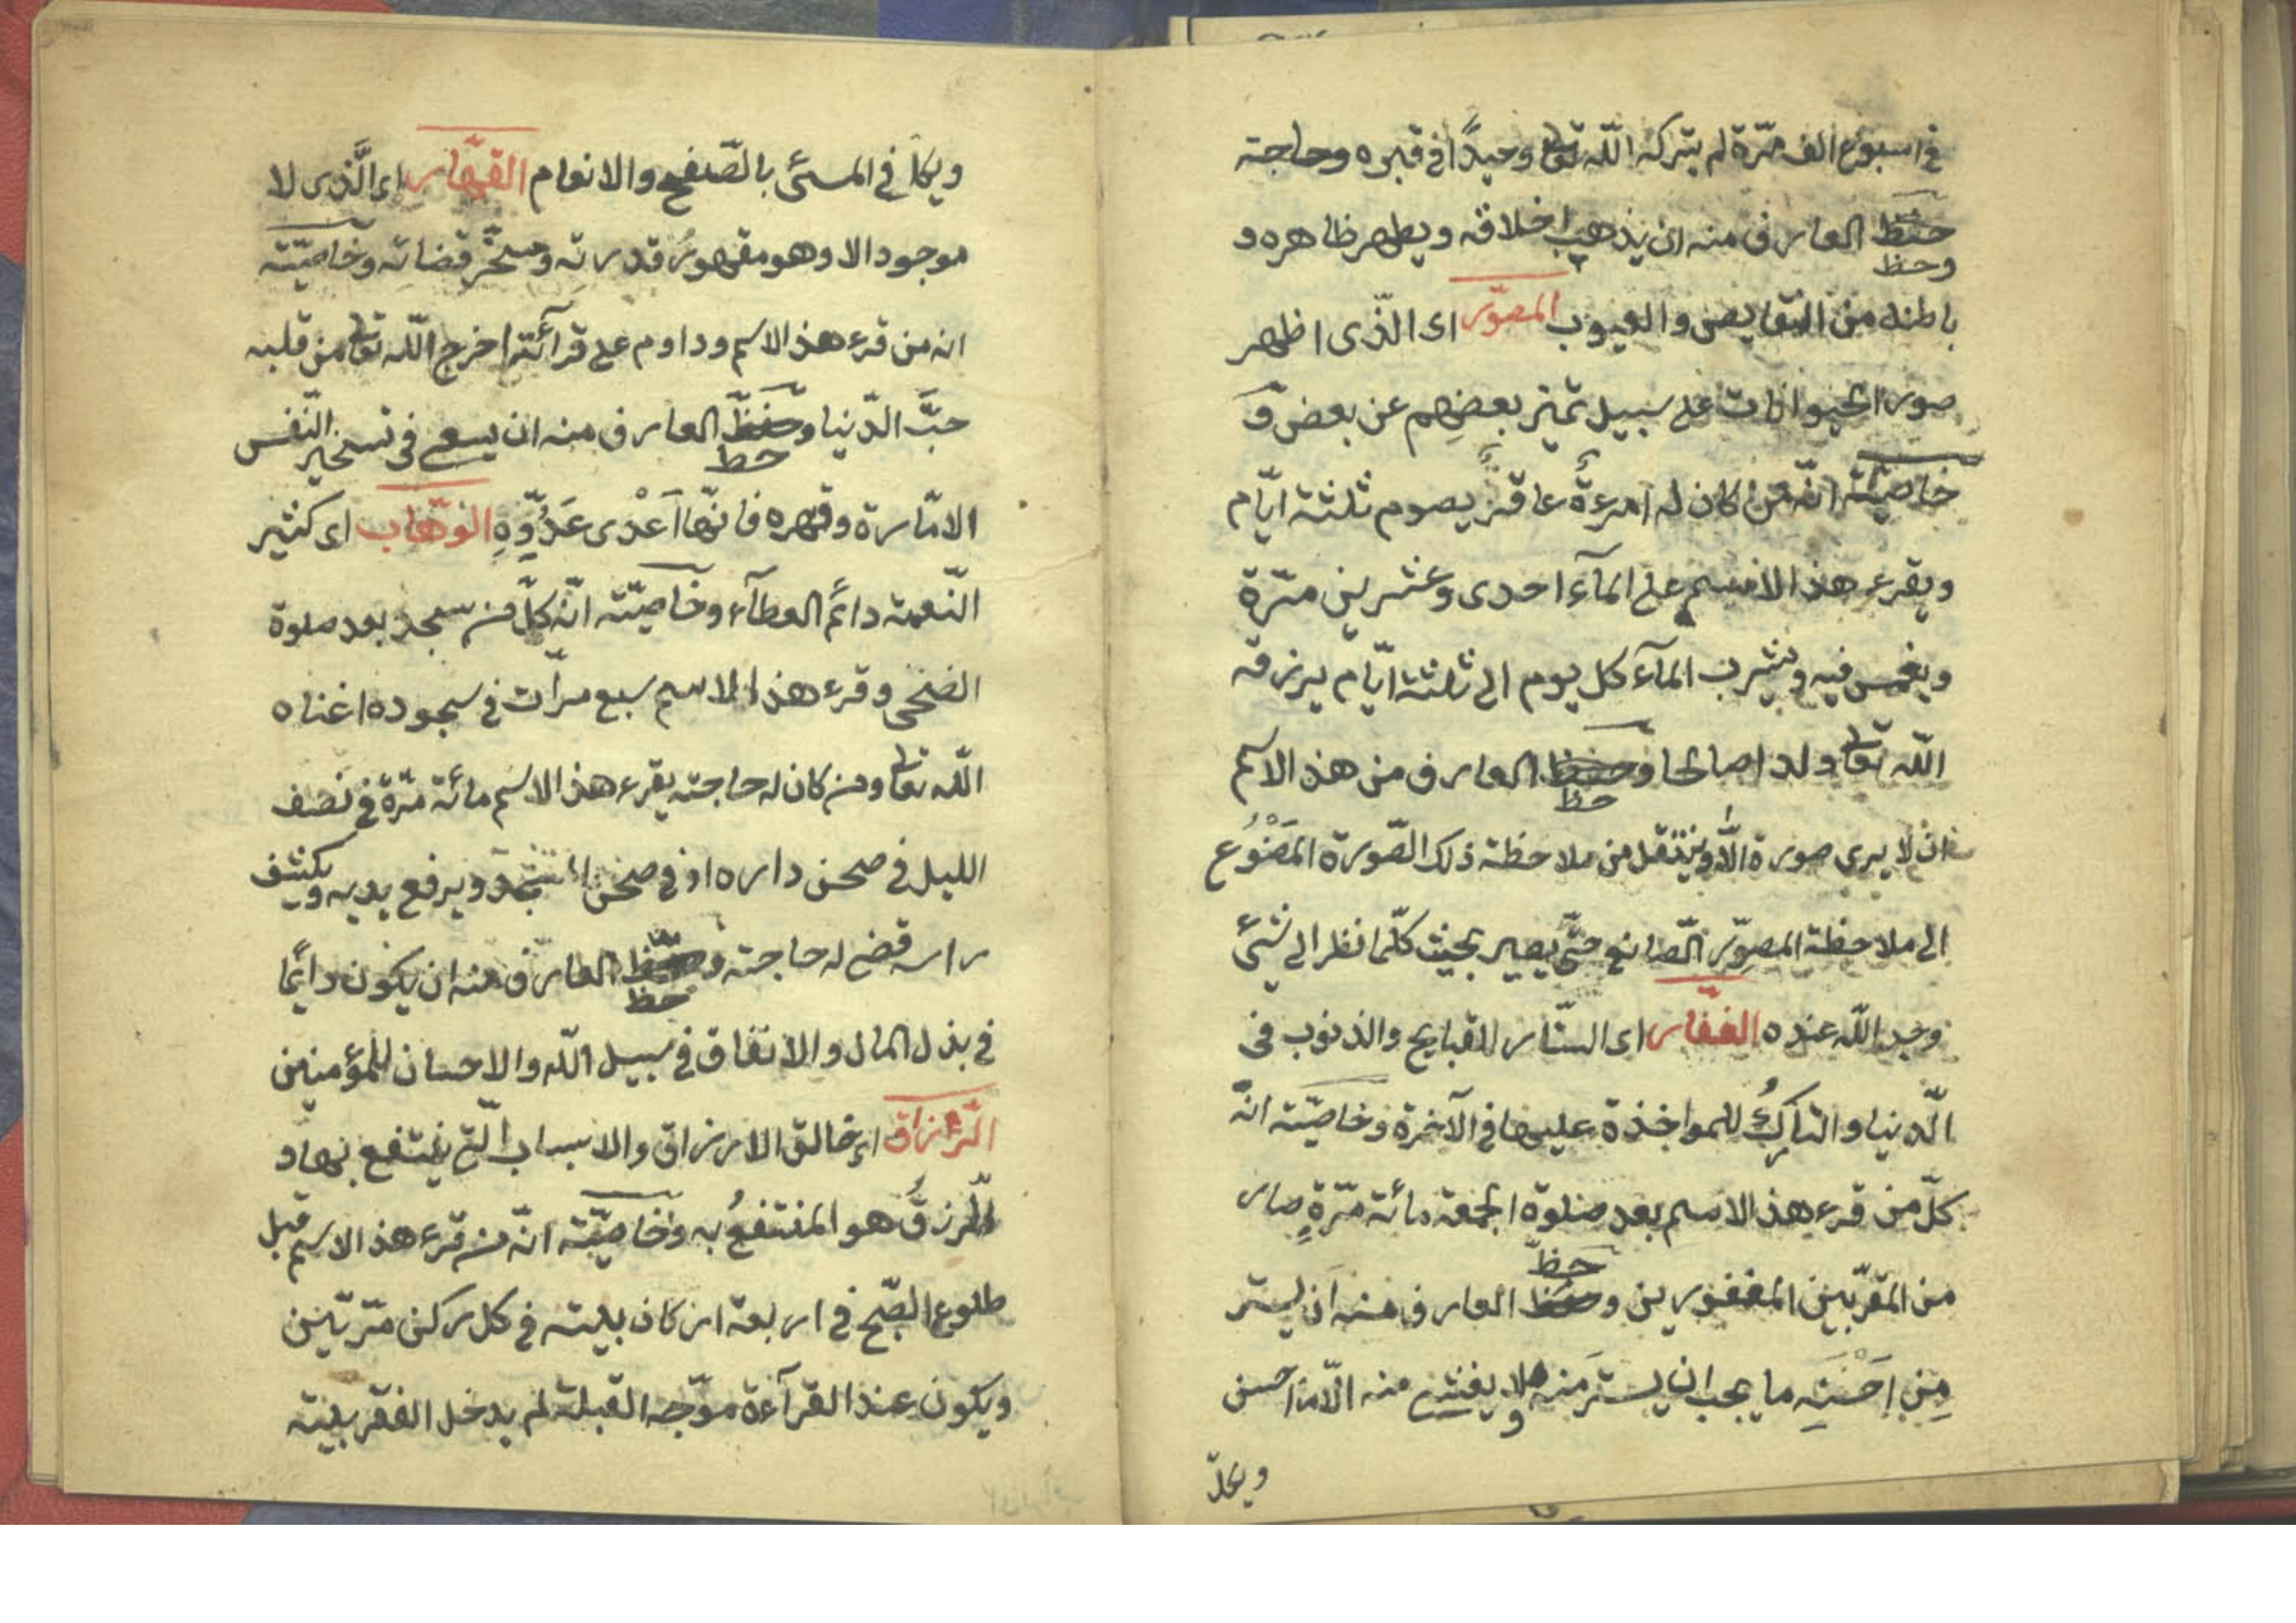 في اسبوع الف مرّة لم يتركه اللّه تعا وحيدًا في قبره وحاجته
حفظ العارف منه ان يذهب اخلاقه ويطهر ظاهره و
وحظ
باطنه من النقايص والعيوب المصوّر اى الّذى اظهر
صور الحيوانات على سبيل تميّز بعضهم عن بعض و
خاصيّته انّه من كان له امرءة عاقرٌ يصوم ثلثة ايّام
ويقرء هذ الاسم على المآء احدى وعشرين مرّة
ويغمس فيه ويشرب المآء كل يوم الى ثلثة ايّام يرزقه
اللّه تعا ولدا صالحا وحفظ العارف من هذ الاسم
حظ
ان لا يرى صورة الّا وينتقل من ملاحظة ذلك الصّورة المَصْنُوع
الى ملاحظة المصوّر الصّانع حتّى يصير بحيث كلّما نظر الى شيئ
وجد اللّه عنده الغفّار اى الستّار للقبايح والذنوب فى
الّدنيا والتاركُ للمواخذة عليها في الآخرة وخاصيّته انّه
كلّ من قرء هذ الاسم بعد صلوة الجمعة مائة مرّةٍ صار
حظّ
من المقرّبين المغفورين وحفظ العارف منه ان يستر
مِن اَحْسَنِه ما يجب ان يستر منه ولا يفشى منه الّا ما احسن
ويكلّ
ويكلّ في المسئ بالصّفح والانعام القهّار اى الَّذى لا
موجود الا وهو مقهورُ قدرته ومسخّر قضائه وخاصيّته
انه من قرء هذ الاسم وداوم على قرآئته اخرج اللّه تعا من قلبه
حبَّ الدّنيا وحفظّ العارف منه ان يسعى في تسخير النّفس
حظ
الامّارة وقهره فانّها اَعْدى عَدُوِّهِ الوهّاب اى كثير
النّعمة دائم العطآء وخاصيّته انّه كلّ من سجد بعد صلوة
الضحى وقرء هذ الاسم سبع مرّات في سجوده اغناه
اللّه تعا ومن كان له حاجته يقرء هذ الاسم مائة مرّة في نصف
الليل في صحن داره او في صحن المسجد ويرفع يديه ويكشف
راسه قضى له حاجته وحفظ العارف منه ان يكون دائما
حظ
في بذل المال والانفاق في سبيل اللّه والاحسان للمؤمنين
الرّزاق اى خالق الارزاق والاسباب الّتى ينتفع بها و
الّرزقُ هو المنتفعُ به وخاصيّته انّه من قرء هذ الاسم قبل
طلوع الصّبح في اربعة اركان بيته في كل ركن مرّتين
ويكون عند القرآءة موّجه القبلة لم يدخل الفقر بيته